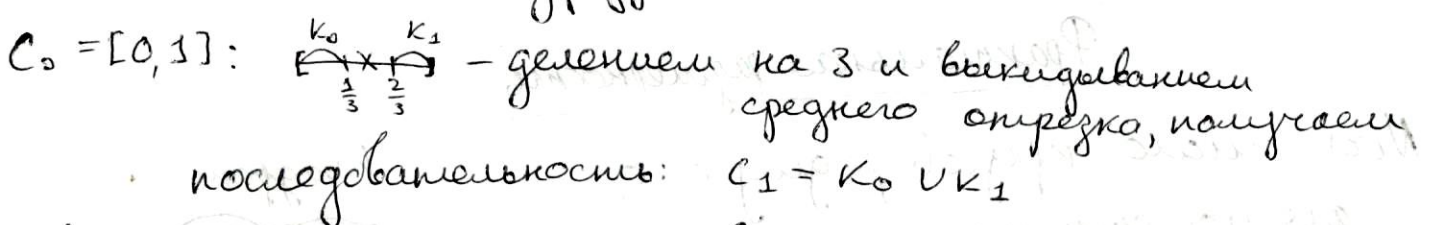 K₀ K₁
C₀ = [0, 1]: – делением на 3 и выкидыванием
1/3 2/3
среднего отрезка, получаем
последовательность: C₁ = K₀ ∪ K₁